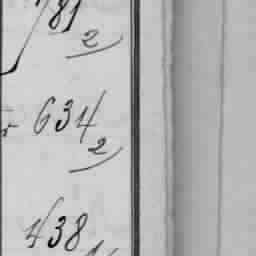 781
2
634
2
438